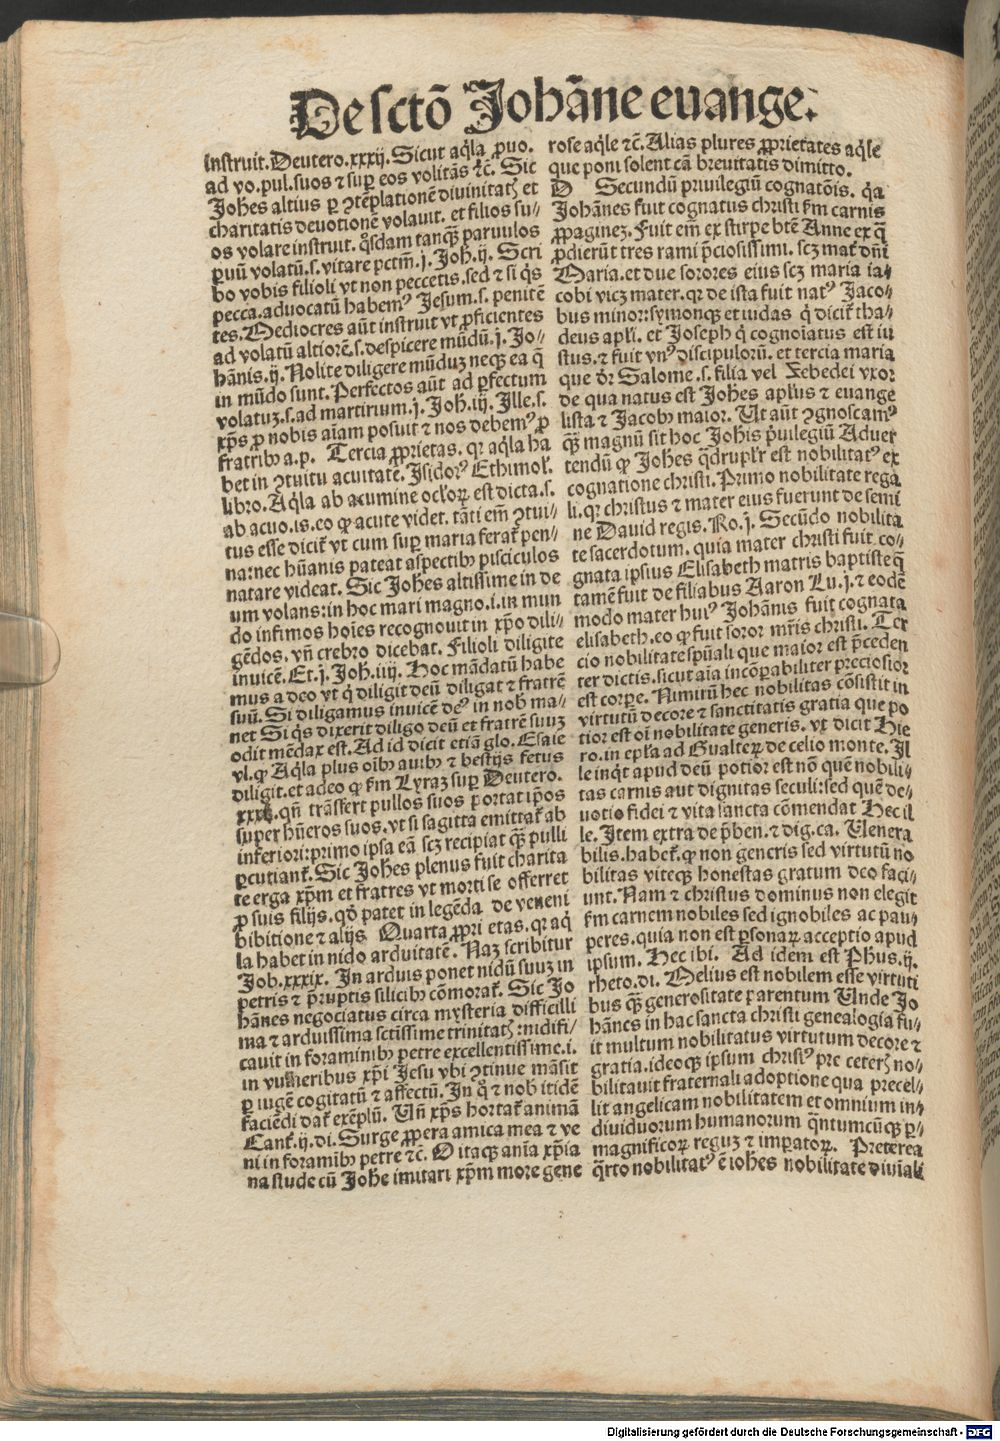 De sctō Johāne evange.
instruit. Deutero. xxxij. Sicut aq̄la ꝓuo.
ad vo. pul. suos ⁊ suꝑ eos volitās ⁊c̄. Sic
Johes altius ꝑ ꝯtēplationē diuinitatꝭ et
charitatis deuotionē volauit. et filios su⸗
os volare instruit. qͦsdam tanqꝫ paruulos
ꝑuū volatū. s. vitare pctm̄. j. Joh. ij. Scri
bo vobis filioli vt non peccetis. sed ⁊ si qͥs
pecca. aduocatū habemꝰ Jesum. s. penitē
tes. Mediocres aūt instruit vt ꝓficientes
ad volatū altiorē. s. despicere mūdū. j. Jo⸗
hānis. ij. Nolite diligere mūduꝫ neqꝫ ea q̄
in mūdo sunt. Perfectos aūt ad ꝑfectum
volatuꝫ. s. ad martirium. j. Joh. iij. Ille. s.
xp̄s ꝓ nobis aīam posuit ⁊ nos debemꝰ ꝓ
fratribꝫ a. p. Tercia ꝓprietas. qꝛ aq̄la ha
bet in ꝯtuitu acuitatē. Isidorꝰ Ethimol.
libro. Aq̄la ab acumine ocl'oꝝ est dicta. s.
ab acuo. is. eo ꝙ acute videt. tāti em̄ ꝯtui⸗
tus esse dicit̉ vt cum suꝑ maria ferat̉ pen⸗
na: nec hūanis pateat aspectibꝫ pisciculos
natare videat. Sic Johes altissime in de
um volans: in hoc mari magno. i. in mun
do infimos hoīes recognouit in xp̄o dili⸗
gēdos. vn̄ crebro dicebat. Filioli diligite
inuicē. Et. j. Joh. iiij. Hoc mādatū habe
mus a deo vt qͥ diligit deū diligat ⁊ fratrē
suū. Si diligamus inuicē deꝰ in nob ma⸗
net Si qͥs dixerit diligo deū et fratrē suuꝫ
odit mēdax est. Ad id dicit etiā glo. Esaie
vl. ꝙ Aq̄la plus oībꝫ auibꝫ ⁊ bestijs fetus
diligit. et adeo ꝙ ẜm Lyraꝫ suꝑ Deutero.
qn̄ trāsfert pullos suos portat ip̄os
super hūeros suos. vt si sagitta emittat̉ ab
inferiori: primo ipsa eā scꝫ recipiat qꝫ pulli
ꝑcutiant̉. Sic Johes plenus fuit charita
te erga xp̄m et fratres vt morti se offerret
ꝓ suis filijs. qd̄ patet in legēda de veneni
bibitione ⁊ alijs Quarta ꝓpri etas. qꝛ aqͥ
la habet in nido arduitatē. Naꝫ scribitur
Job. xxxix. In arduis ponet nidū suuꝫ in
petris ⁊ p̄ruptis silicibꝫ cōmorat̉. Sic Jo
hānes negociatus circa mysteria difficilli
ma ⁊ arduissima sctīssime trinitatꝭ: nidifi⸗
cauit in foraminibꝫ petre excellentissime. i.
in vulneribus xp̄i Jesu vbi ꝯtinue māsit
ꝑ iugē cogitatū ⁊ affectū. In qͦ ⁊ nob itidē
faciēdi dat̉ exēplū. Vn̄ xp̄s hortat̉ animā
Cant̉. ij. di. Surge ꝓpera amica mea ⁊ ve
ni in foramibꝫ petre ⁊c̄. O itaqꝫ anīa xp̄ia
na stude cū Johe imitari xp̄m more gene
rose aq̄le ⁊c̄. Alias plures ꝓprietates aq̄le
que poni solent cā breuitatis dimitto.
D Secundū priuilegiū cognatōis. qͣ
Johānes fuit cognatus christi ẜm carnis
ꝓpagineꝫ. Fuit em̄ ex stirpe btē Anne ex q̄
ꝓdierūt tres rami p̄ciosissimi. scꝫ mat̉ dn̄i
Maria. et due sorores eius scꝫ maria ia⸗
cobi vicꝫ mater. qꝛ de ista fuit natꝰ Jaco⸗
bus minor: symonqꝫ et iudas qͥ dicit̉ tha⸗
deus apl'i. et Joseph qͥ cognoīatus est iu
stus. ⁊ fuit vnꝰ discipulorū. et tercia maria
que dr̄ Salome. s. filia vel Zebedei vxor
de qua natus est Johes apl'us ⁊ euange
lista ⁊ Jacobꝫ maior. Ut aūt ꝯgnoscamꝰ
qꝫ magnū sit hoc Johis p̄uilegiū Aduer
tendū ꝙ Johes qͣdrupl'r est nobilitatꝰ ex
cognatione christi. Primo nobilitate rega
li. qꝛ christus ⁊ mater eius fuerunt de semi
ne Dauid regis. Ro. j. Secūdo nobilita
te sacerdotum. quia mater christi fuit co⸗
gnata ipsius Elisabeth matris baptiste q̄
tamē fuit de filiabus Aaron Lu. j. ⁊ eodē
modo mater huiꝰ Johānis fuit cognata
elisabeth. eo ꝙ fuit soror mr̄is christi. Ter
cio nobilitate spūali que maior est p̄ceden
ter dictis. sicut aīa incōꝑabiliter preciosior
est corꝑe. Nimirū hec nobilitas cōsistit in
virtutū decore ⁊ sanctitatis gratia que po
tior est oī nobilitate generis. vt dicit Hie
ro. in epl'a ad Gualteꝝ de celio monte. Il
le inqͥt apud deū potior est nō quē nobili⸗
tas carnis aut dignitas seculi: sed quē de⸗
uotio fidei ⁊ vita sancta cōmendat Hec il
le. Item extra de p̄ben. ⁊ dig. ca. Venera
bilis. habet̉. ꝙ non generis sed virtutū no
bilitas viteqꝫ honestas gratum deo faci⸗
unt. Nam ⁊ christus dominus non elegit
ẜm carnem nobiles sed ignobiles ac pau⸗
peres. quia non est ꝑsonaꝝ acceptio apud
ipsum. Hec ibi. Ad idem est Phus. ij.
rheto. di. Melius est nobilem esse virtuti
bus qꝫ generositate parentum Unde Jo
hānes in hac sancta christi genealogia fu⸗
it multum nobilitatus virtutum decore ⁊
gratia. ideoqꝫ ipsum christꝰ pre ceterꝭ no⸗
bilitauit fraternali adoptione qua precel⸗
lit angelicam nobilitatem et omnium in⸗
diuiduorum humanorum qͣntumcūqꝫ ꝑ⸗
magnificoꝝ reguꝫ ⁊ imꝑatoꝝ. Preterea
qͣrto nobilitatꝰ ē iohes nobilitate diuīali
Digitalisierung gefördert durch die Deutsche Forschungsgemeinschaft - DFG